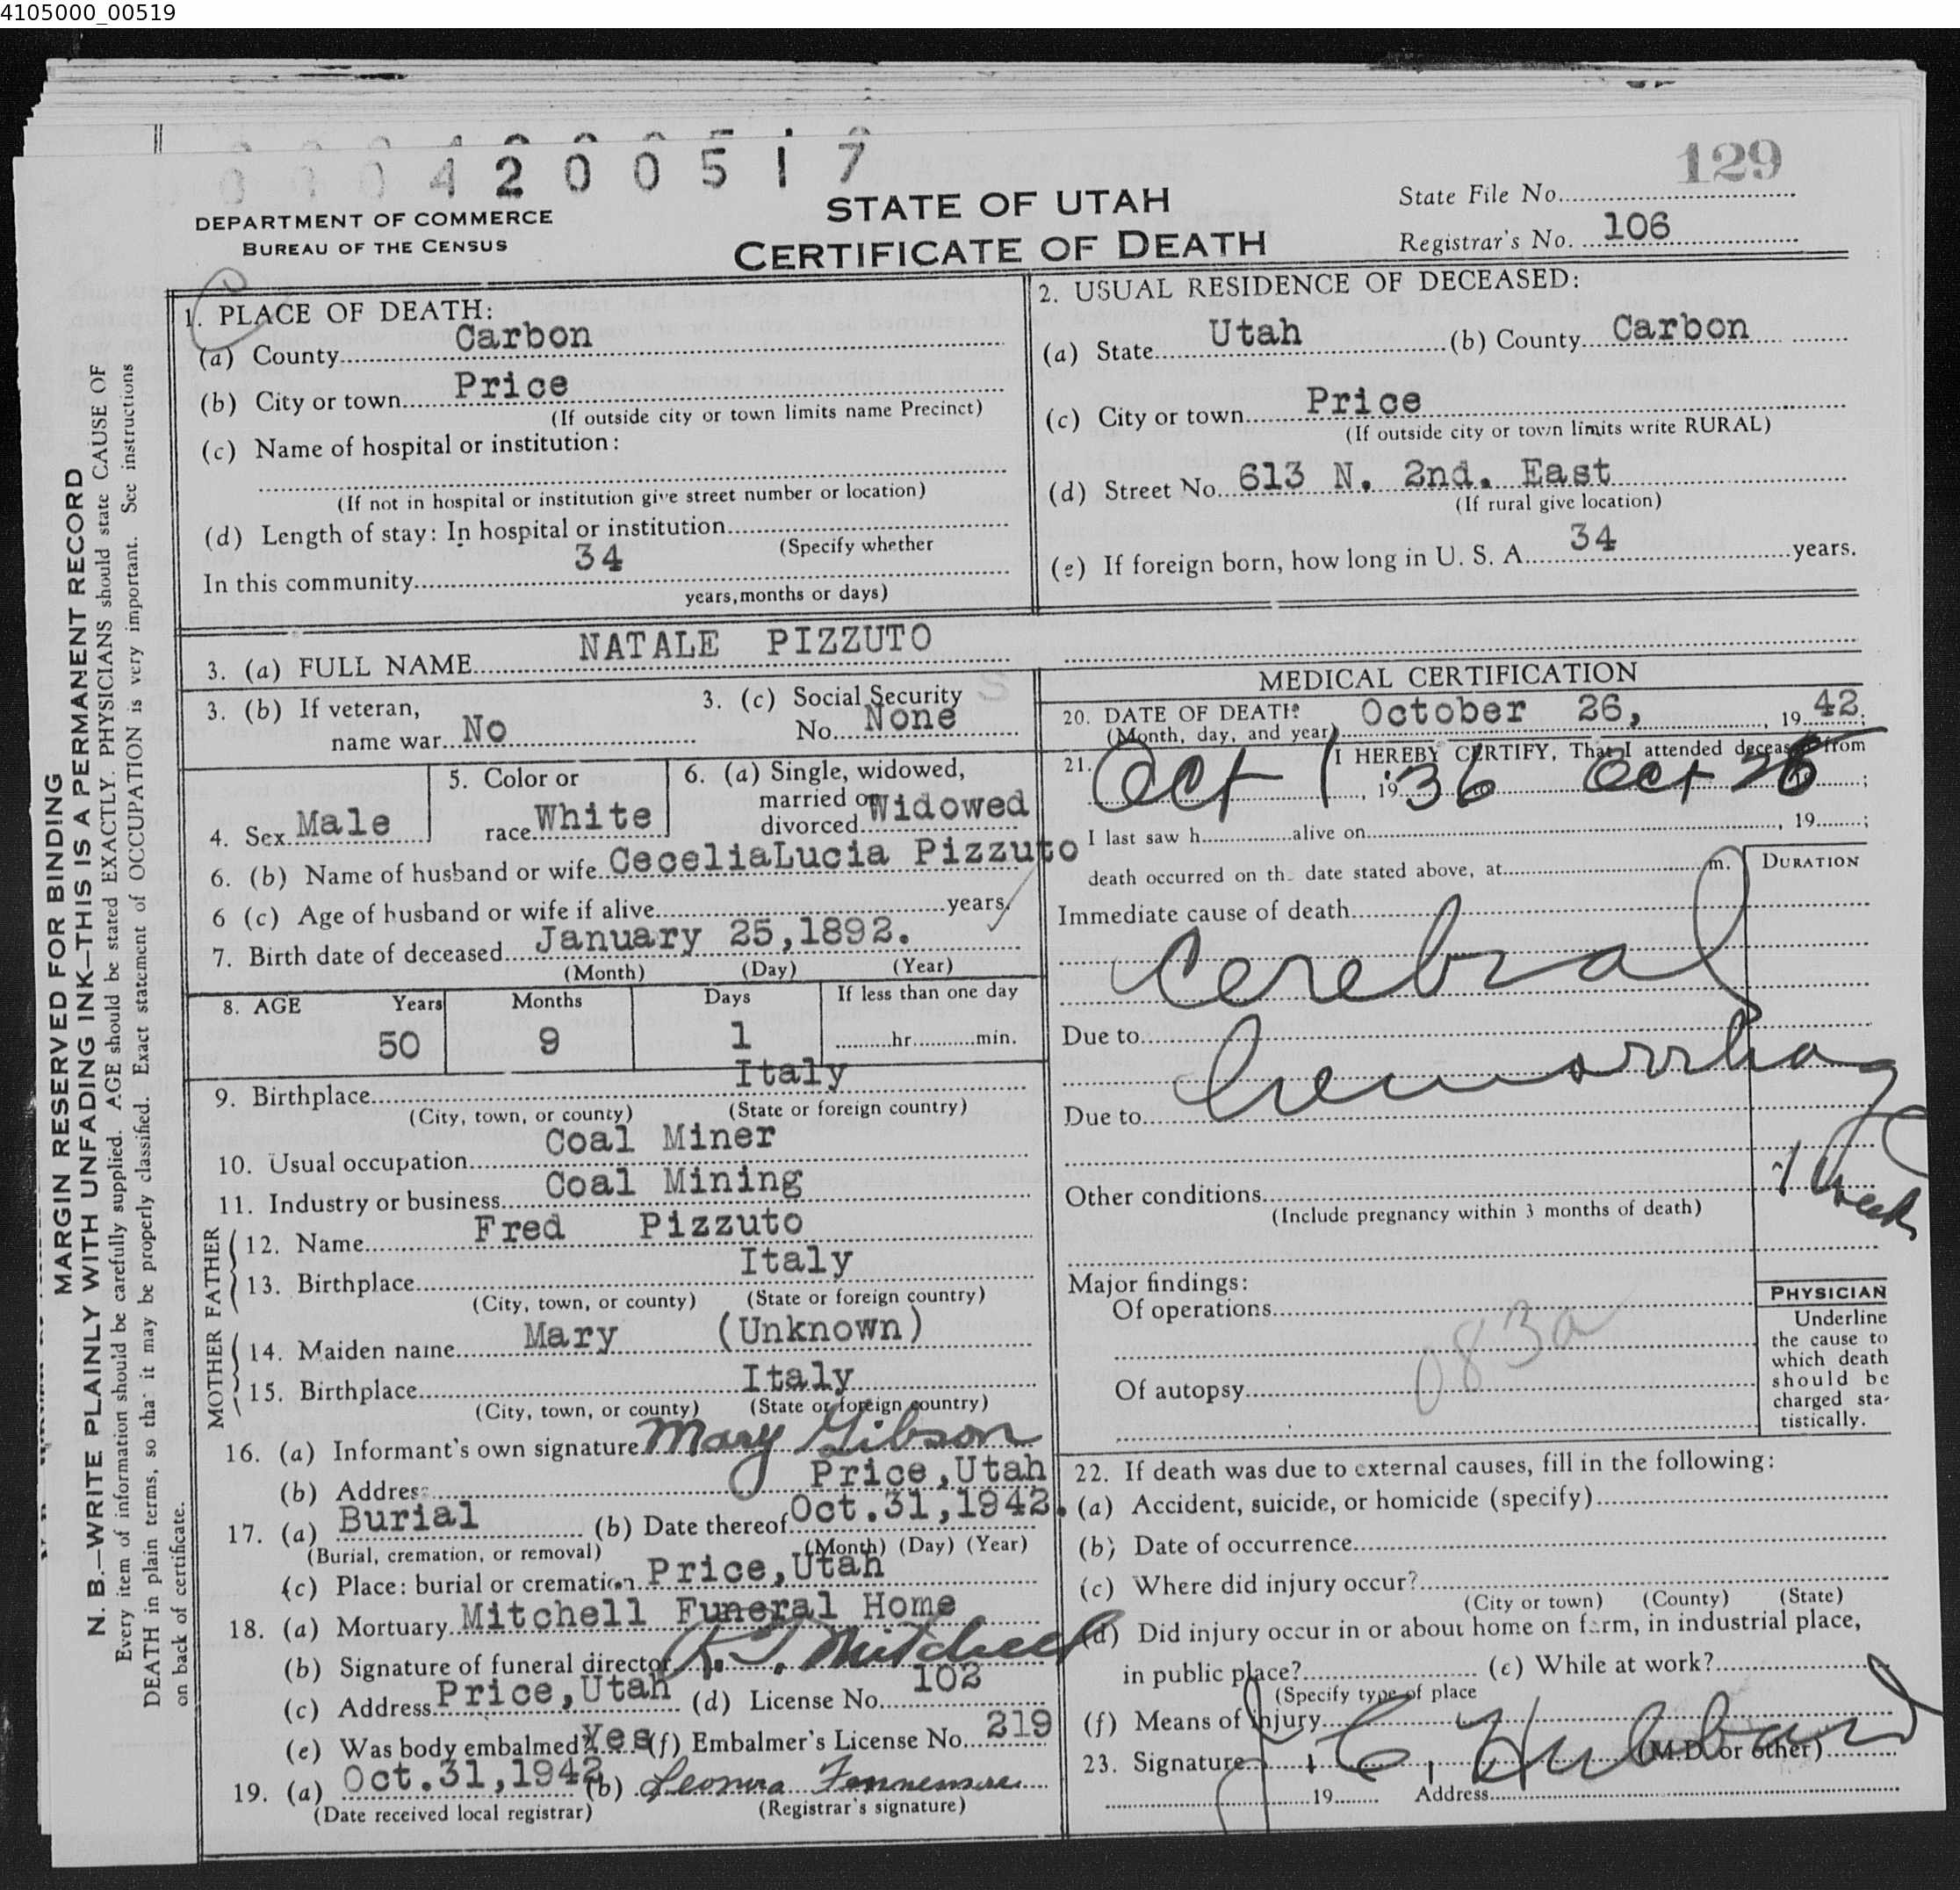 4105000_00519
0 0 0 4 2 0 0 5 1 7
129
DEPARTMENT OF COMMERCE
BUREAU OF THE CENSUS
STATE OF UTAH
CERTIFICATE OF DEATH
State File No.
Registrar's No. 106
1. PLACE OF DEATH:
(a) County Carbon
(b) City or town Price
(If outside city or town limits name Precinct)
(c) Name of hospital or institution:
(If not in hospital or institution give street number or location)
(d) Length of stay: In hospital or institution
(Specify whether
In this community 34
years, months or days)
2. USUAL RESIDENCE OF DECEASED:
(a) State Utah (b) County Carbon
(c) City or town Price
(If outside city or town limits write RURAL)
(d) Street No. 613 N. 2nd. East
(If rural give location)
(e) If foreign born, how long in U. S. A. 34 years.
3. (a) FULL NAME NATALE PIZZUTO
3. (b) If veteran,
name war No
3. (c) Social Security
No. None
4. Sex Male
5. Color or
race White
6. (a) Single, widowed,
married or
divorced Widowed
6. (b) Name of husband or wife CeceliaLucia Pizzuto
6 (c) Age of husband or wife if alive years.
7. Birth date of deceased January 25,1892.
(Month) (Day) (Year)
8. AGE Years Months Days If less than one day
50 9 1 hr. min.
9. Birthplace Italy
(City, town, or county) (State or foreign country)
10. Usual occupation Coal Miner
11. Industry or business Coal Mining
FATHER
12. Name Fred Pizzuto
13. Birthplace Italy
(City, town, or county) (State or foreign country)
MOTHER
14. Maiden name Mary (Unknown)
15. Birthplace Italy
(City, town, or county) (State or foreign country)
16. (a) Informant's own signature Mary Gibson
(b) Address Price,Utah
17. (a) Burial (b) Date thereof Oct.31,1942.
(Burial, cremation, or removal) (Month) (Day) (Year)
(c) Place: burial or cremation Price,Utah
18. (a) Mortuary Mitchell Funeral Home
(b) Signature of funeral director Mitchell
(c) Address Price,Utah (d) License No. 102
(e) Was body embalmed? Yes (f) Embalmer's License No. 219
19. (a) Oct.31,1942 (b) Leonora
(Date received local registrar) (Registrar's signature)
MEDICAL CERTIFICATION
20. DATE OF DEATH October 26, 1942;
(Month, day, and year)
21. I HEREBY CERTIFY, That I attended deceased from
Oct 1, 1936 to Oct 26 19 ;
I last saw h alive on , 19 ;
death occurred on the date stated above, at m.
DURATION
Immediate cause of death
Cerebral
Due to
hemorrhag
Due to
1 week
Other conditions
(Include pregnancy within 3 months of death)
Major findings:
Of operations
083a
Of autopsy
PHYSICIAN
Underline
the cause to
which death
should be
charged sta-
tistically.
22. If death was due to external causes, fill in the following:
(a) Accident, suicide, or homicide (specify)
(b) Date of occurrence
(c) Where did injury occur?
(City or town) (County) (State)
(d) Did injury occur in or about home on farm, in industrial place,
in public place? (e) While at work?
(Specify type of place
(f) Means of injury
23. Signature C. Hubbard (M.D. or other)
19 Address
MARGIN RESERVED FOR BINDING
N. B.—WRITE PLAINLY WITH UNFADING INK—THIS IS A PERMANENT RECORD
Every item of information should be carefully supplied. AGE should be stated EXACTLY. PHYSICIANS should state CAUSE OF
DEATH in plain terms, so that it may be properly classified. Exact statement of OCCUPATION is very important. See instructions
on back of certificate.